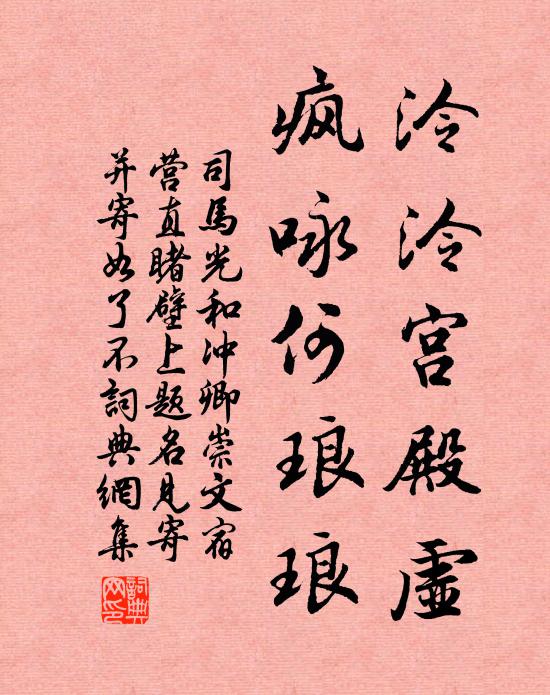 泠泠宫殿虚
疯咏何琅琅
司馬光和冲卿崇文宿
营直睹壁上题名見寄
并寄如了不詞典網集
詞典網印